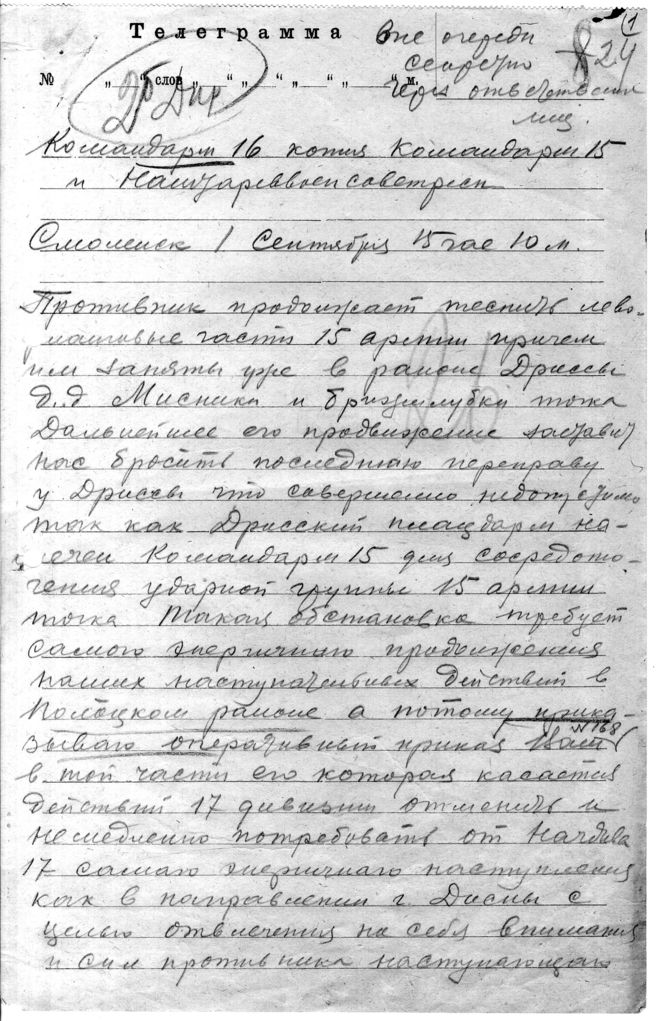 (1
Телеграмма
Вне очереди
824
секретно
№ „ “ слов „ “ „ “ „ “ „ “ м.
через ответствен
лиц.
Командарм 16 копия Командарм 15
и
Смоленск 1 Сентября 15 час 10 м.
Противник продолжает теснить лево-
фланговые части 15 армии причем
им заняты уже в районе Дриссы
д.д Мисники и точка
Дальнейшее его продвижение заставит
нас бросить последнюю переправу
у Дриссы что совершенно недопустимо
так как Дрисский плацдарм на-
мечен Командарм 15 для сосредото-
чения ударной группы 15 армии
точка Такая обстановка требует
самого энергичного продолжения
наших наступательных действий в
Полоцком районе а потому прика-
№ 168
зываю оперативный приказ Ваш
в той части его которая касается
действий 17 дивизии отменить и
немедленно потребовать от Начдива
17 самого энергичного наступления
как в направлении г. Дисны с
целью отвлечения на себя внимания
и сил противника наступающего